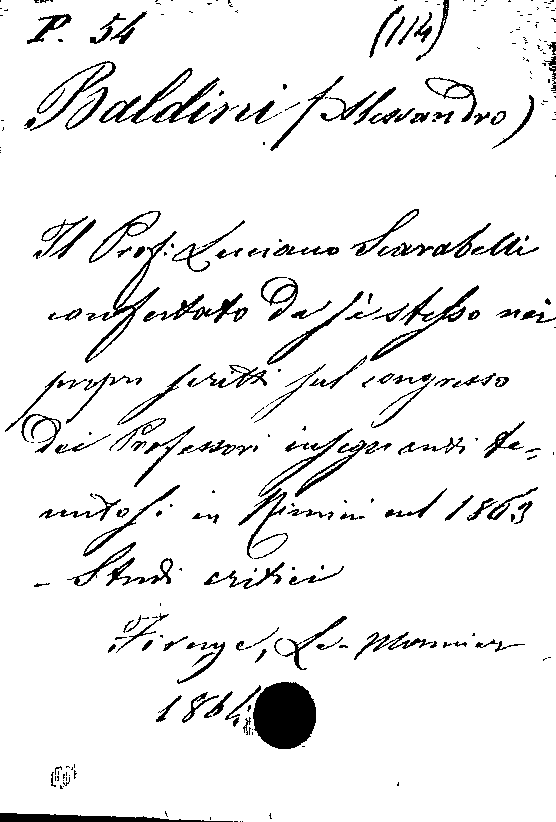 P. 54 (114)
Baldini (Alessandro)
Il Prof: Luciano Scarabelli
confortato da sè stesso nei
propri scritti sul congresso
dei Professori insegnanti te=
nutosi in Rimini nel 1863
- Studi critici
Firenze, Le-Monnier
1864